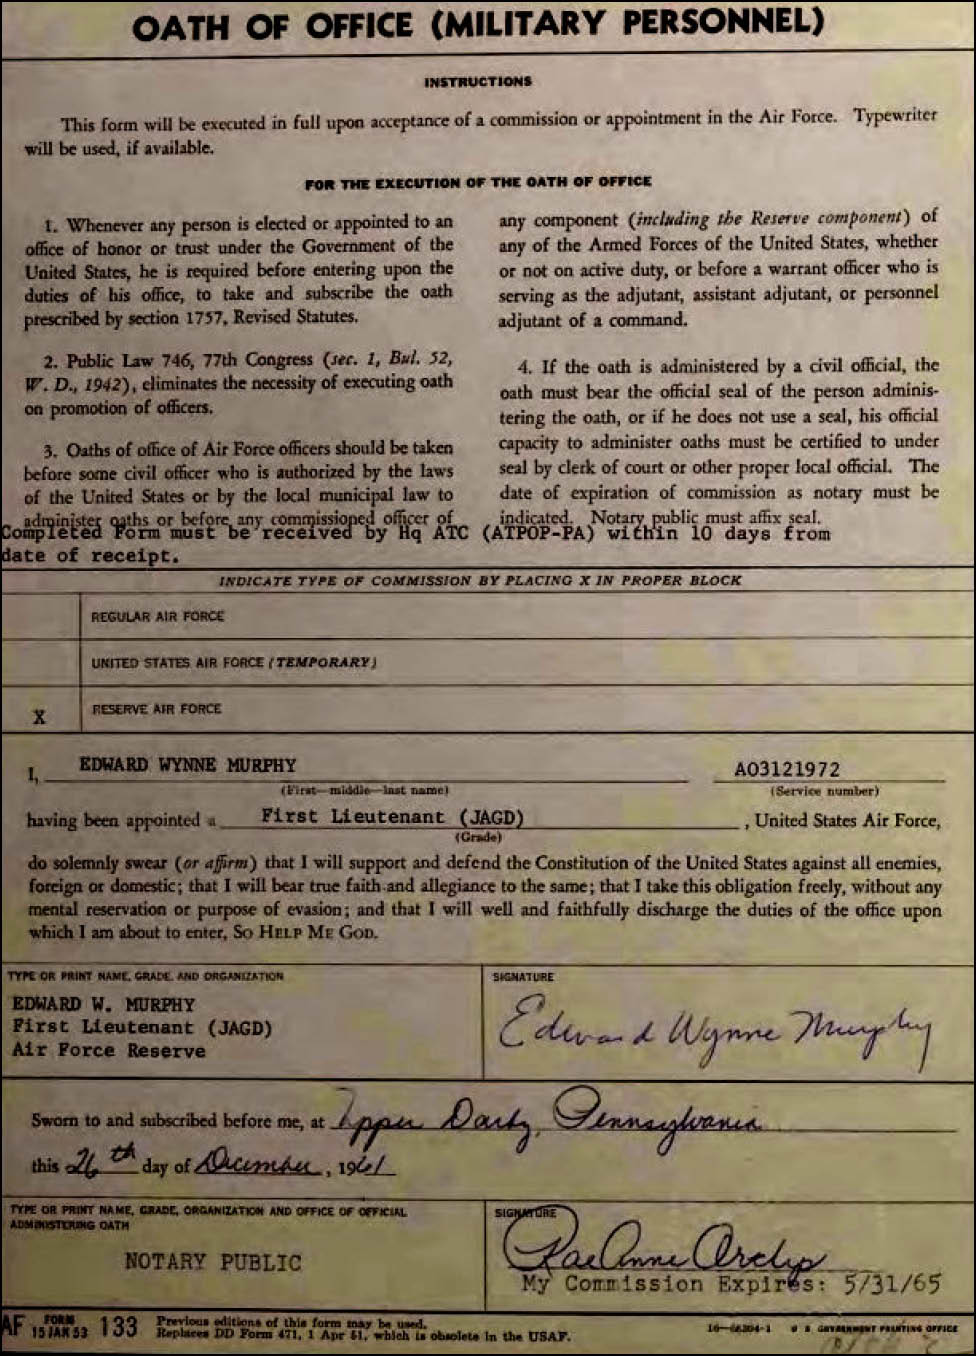 OATH OF OFFICE (MILITARY PERSONNEL)
INSTRUCTIONS
This form will be executed in full upon acceptance of a commission or appointment in the Air Force. Typewriter
will be used, if available.
FOR THE EXECUTION OF THE OATH OF OFFICE
1. Whenever any person is elected or appointed to an
office of honor or trust under the Government of the
United States, he is required before entering upon the
duties of his office, to take and subscribe the oath
prescribed by section 1757, Revised Statutes.
2. Public Law 746, 77th Congress (sec. 1, Bul. 52,
W. D., 1942), eliminates the necessity of executing oath
on promotion of officers.
3. Oaths of office of Air Force officers should be taken
before some civil officer who is authorized by the laws
of the United States or by the local municipal law to
administer oaths or before any commissioned officer of
any component (including the Reserve component) of
any of the Armed Forces of the United States, whether
or not on active duty, or before a warrant officer who is
serving as the adjutant, assistant adjutant, or personnel
adjutant of a command.
4. If the oath is administered by a civil official, the
oath must bear the official seal of the person adminis-
tering the oath, or if he does not use a seal, his official
capacity to administer oaths must be certified to under
seal by clerk of court or other proper local official. The
date of expiration of commission as notary must be
indicated. Notary public must affix seal.
Completed Form must be received by Hq ATC (ATPOP-PA) within 10 days from
date of receipt.
INDICATE TYPE OF COMMISSION BY PLACING X IN PROPER BLOCK
REGULAR AIR FORCE
UNITED STATES AIR FORCE (TEMPORARY)
X RESERVE AIR FORCE
I, EDWARD WYNNE MURPHY AO3121972
(First—middle—last name) (Service number)
having been appointed a First Lieutenant (JAGD), United States Air Force,
(Grade)
do solemnly swear (or affirm) that I will support and defend the Constitution of the United States against all enemies,
foreign or domestic; that I will bear true faith and allegiance to the same; that I take this obligation freely, without any
mental reservation or purpose of evasion; and that I will well and faithfully discharge the duties of the office upon
which I am about to enter, SO HELP ME GOD.
TYPE OR PRINT NAME, GRADE, AND ORGANIZATION
EDWARD W. MURPHY
First Lieutenant (JAGD)
Air Force Reserve
SIGNATURE
Edward Wynne Murphy
Sworn to and subscribed before me, at Upper Darby, Pennsylvania
this 26th day of December, 1961
TYPE OR PRINT NAME, GRADE, ORGANIZATION AND OFFICE OF OFFICIAL
ADMINISTERING OATH
NOTARY PUBLIC
SIGNATURE
RaeAnne
My Commission Expires: 5/31/65
AF FORM 15 JAN 53 133 Previous editions of this form may be used.
Replaces DD Form 471, 1 Apr 51, which is obsolete in the USAF.
U S GOVERNMENT PRINTING OFFICE